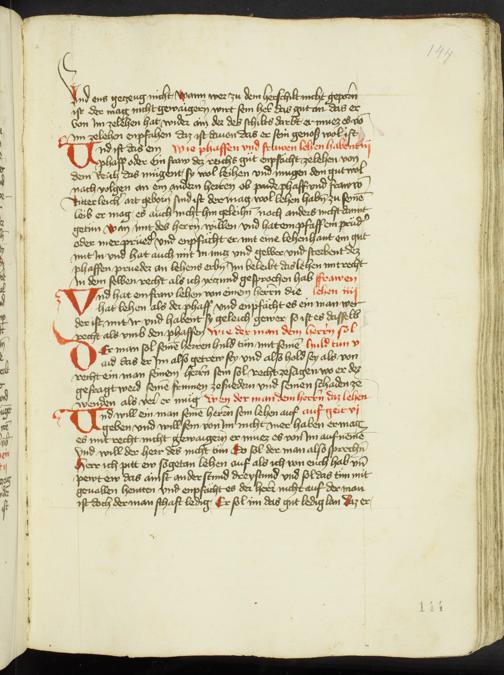 147
Und ens getzeug nicht Wann wer zu dem herschilt nicht geporn
ist der mag nicht gewaigern wirt sein her das gut an das er
von im zelehen hat wider ain der des schilts darbt er muez es vo
im zelehen enpfahen daz ist davon das er sein genos wol ist
Und ist das ein Wie phaffen und frawen lehen haben iij
phaff oder ein fraw dez reichs gut enpfacht zelehen von
dem Reich das mugent sy wol leihen und mugen den gut wol
nach volgen an ein andern herren ob paide phaff und fraw
Ritterleich art geborn sind ist der mag wol lehen haben zu seinē
leib er mag es auch nicht hin geleihn noch anders nicht damit
getun Wan mit des herrn willen und hat ein pfaff ein prud
oder mer prued und enpfacht er mit eine lehen haut ein gut
mit in und hat auch mit in nutz und gelber und sterbent dez
phaffen prueder an lehens erbn Im beleibt das lehen mit recht
in dem selben recht als ich yczund gesprochen hab frawen
Und hat ein fraw lehen von einem herrn die lehen iiij
hat lehen als der phaff und enpfacht es ein man wer
der ist mit ir und habent sy geleich gewer so ist es dasselb
recht als umb den phaffen Wie der man dem herrn sol
Der man sol seinē herren huld tun mit seinē huld tun v
aid das er Im also getrew sey und also hold sey als von
recht ein man seinem herrn sein sol recht ze sagen wo er dez
gefragt werd seine frumen ze fuedern und seinen schaden ze
wenden als ver er mug Wen der man dem herrn daz lehen
Und will ein man seinē herrn sein lehen auf auf geit vi
geben und will sein von im nicht mer haben er mag
es mit recht nicht gewaigern er muez es von im aufneme
und will der herr des nicht tun So sol der man also sprechn
herr ich pitt ew sogetan lehen auf als ich von euch hab un
pewt ew das ainst anderstund dreystund und sol das tun mit
gevallen henten und enpfacht es der herr nicht auf der man
ist doch der man schaft ledig Er sol im das gut ledig lan Daz er
144